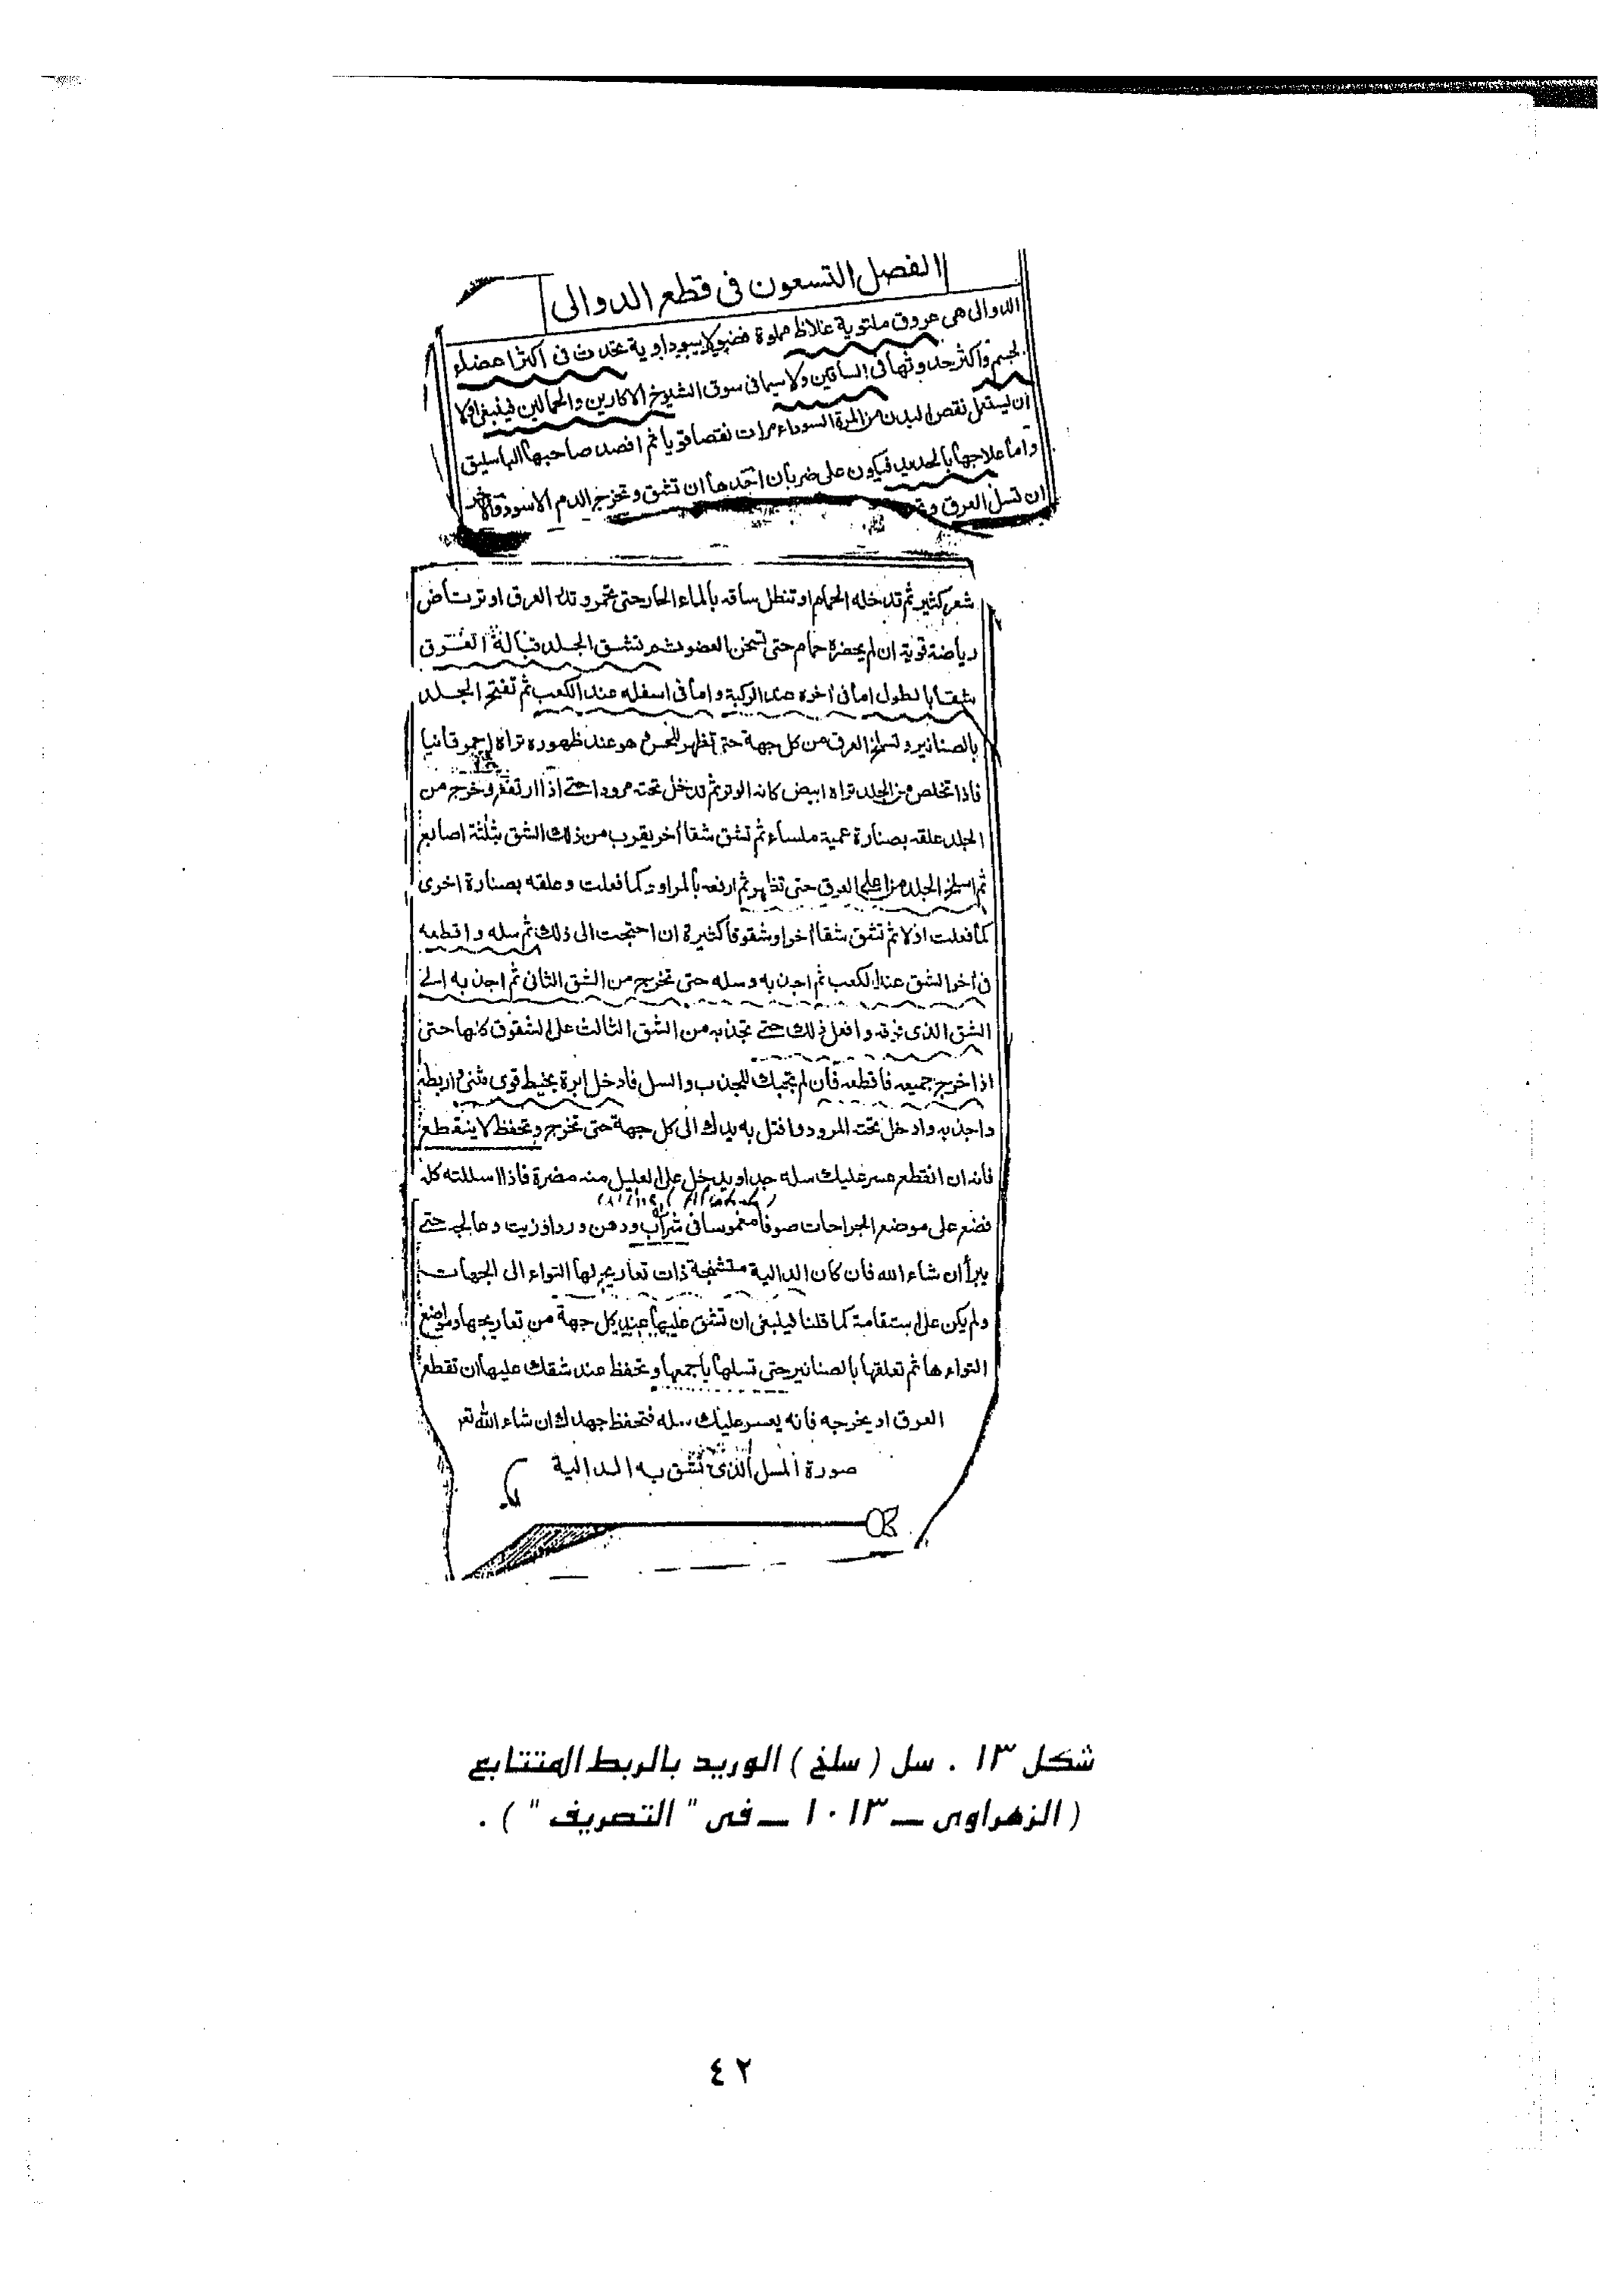 الفصل التسعون فى قطع الدوالى
الدوالى هى عروق ملتوية غلاظ مملوة فضولا سوداوية تحدث فى اكثر اعضاء
الجسم واكثر حدوثها فى الساقين ولا سيما فى سوق الشيوخ الاكارين والحمالين فينبغى اولا
ان يستعمل نقص البدن من المرة السوداء مرات نقصا قويا ثم افصد صاحبها الباسليق
واما علاجها بالحديد فيكون على ضربان احدها ان تشق وتخرج الدم الاسود والاخر
ان تسل العرق
شعر كثير ثم تدخله الحمام او تنطل ساقه بالماء الحار حتى تحمر وتدر العرق او ترتاض
رياضة قوية ان لم يحضره حمام حتى تسخن العضو ثم تشق الجلد قبالة العرق
شقا بالطول اما فى اخره عند الركبة واما فى اسفله عند الكعب ثم تفتح الجلد
بالصنانير وتسلخ العرق من كل جهة حتى تظهر للحس وهو عند ظهوره تراه احمر قانيا
فاذا تخلص من الجلد تراه ابيض كانه الوتر ثم تدخل تحته مرودا حتى اذا ارتفع وخرج من
الجلد علقه بصنارة عمية ملساء ثم تشق شقا اخر يقرب من ذلك الشق بثلثة اصابع
ثم اسلخ الجلد من اعلى العرق حتى تظهر ثم ارفعه بالمراود كما فعلت وعلقه بصنارة اخرى
كما فعلت اولا ثم تشق شقا اخر او شقوقا كثيرة ان احتجت الى ذلك ثم سله واقطعه
فى اخر الشق عند الكعب ثم اجذبه وسله حتى تخرج من الشق الثانى ثم اجذبه الى
الشق الذى فوقه وافعل ذلك حتى تجذبه من الشق الثالث على الشقوق كلها حتى
اذا خرج جميعه فاقطعه فان لم يجبك للجذب والسل فادخل ابرة بخيط قوى مثنى واربطه
واجذبه وادخل تحته المرود وافتل به يدك الى كل جهة حتى تخرج وتحفظ لا ينقطع
فانه ان انقطع عسر عليك سله جدا ويدخل على العليل منه مضرة فاذا اسللته كله
فضع على موضع الجراحات صوفا مغموسا فى شراب ودهن ورد او زيت وعالج حتى
يبرأ ان شاء الله فان كان الدالية متشنجة ذات تعاريج لها التواء الى الجهات
ولم يكن على استقامة كما قلنا فينبغى ان تشق عليها عند كل جهة من تعاريجها ومواضع
التواءها ثم تعلقها بالصنانير حتى تسلها باجمعها وتحفظ عند شقك عليها ان تقطع
العرق او يخرجه فانه يعسر عليك سله فتحفظ جهدك ان شاء الله تع
صورة المسل الذى تشق به الدالية
شكل ١٣ . سل ( سلخ ) الوريد بالربط المتتابع
( الزهراوى – ١٠١٣ – فى " التصريف " ) .
٤٢